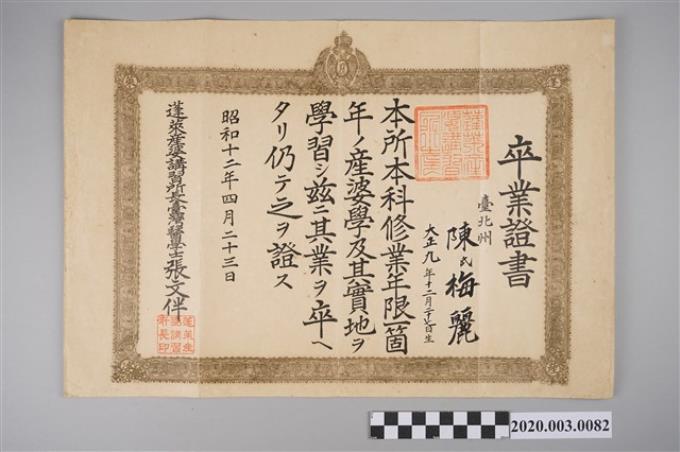 卒業證書
臺北州
陳氏梅麗
大正九年十二月二十七日生
本所本科修業年限一箇
年ノ産婆學及其實地ヲ
學習シ茲ニ其業ヲ卒ヘ
タリ仍テ之ヲ證ス
昭和十二年四月二十三日
蓬萊産婆講習所長臺灣醫學士張文伴
蓬萊産婆講習所長印
2020.003.0082